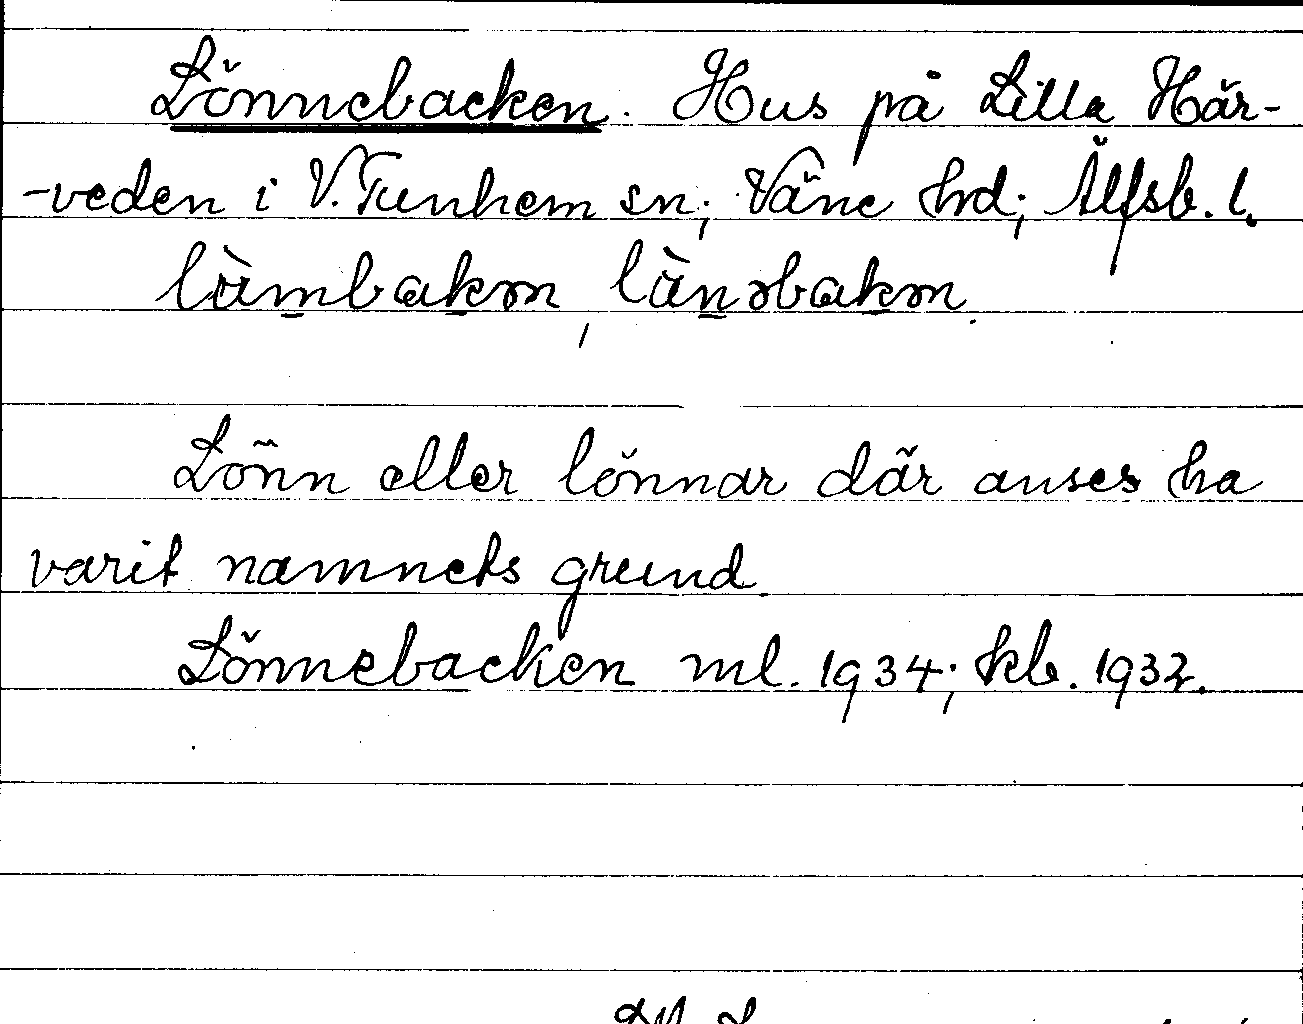 Lönnebacken. Hus på Lilla Här-
-veden i V. Tunhem sn; Väne hd; Älfsb. l.
Lönn eller lönnar där anses ha
varit namnets grund.
Lönnebacken ml. 1934; kb. 1932.